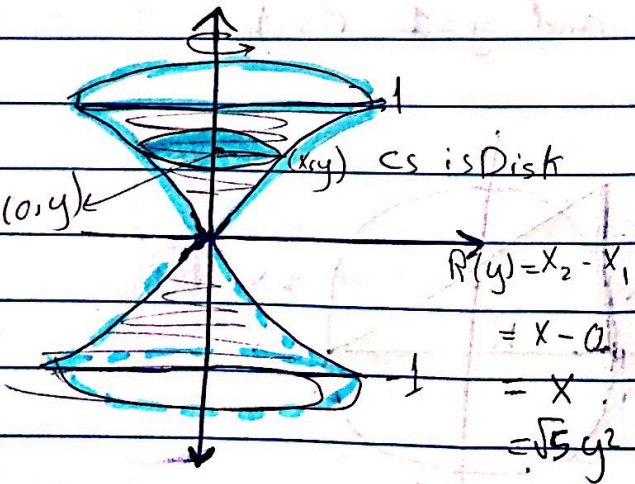 1
(x,y) cs is Disk
(0,y)
R(y) = x₂ - x₁
= x - 0
= x
-1
= √5 y²